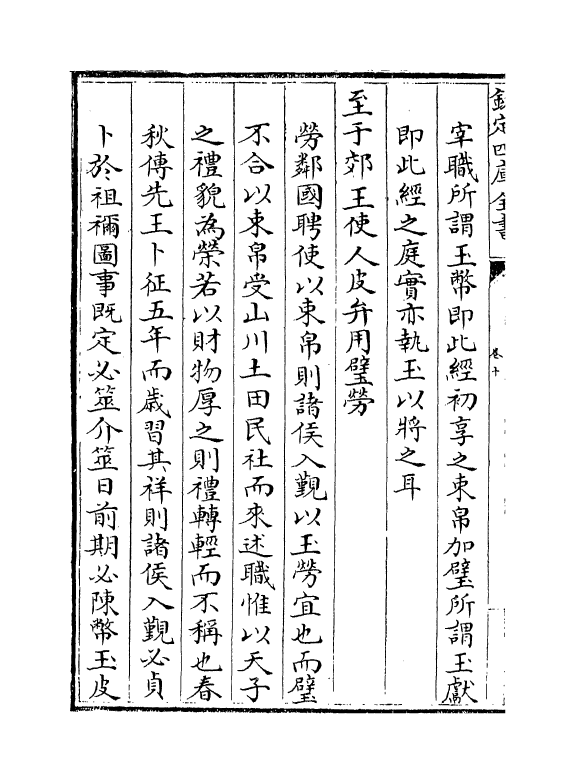 欽定四庫全書
卷十
宰職所謂玉幣即此經初享之束帛加璧所謂玉獻
即此經之庭實亦執玉以將之耳
至于郊王使人皮弁用璧勞
勞鄰國聘使以束帛則諸侯入覲以玉勞宜也而璧
不合以束帛受山川土田民社而來述職惟以天子
之禮貌為榮若以財物厚之則禮轉輕而不稱也春
秋傳先王卜征五年而歲習其祥則諸侯入覲必貞
卜於祖禰圖事既定必筮介筮日前期必陳幣玉皮